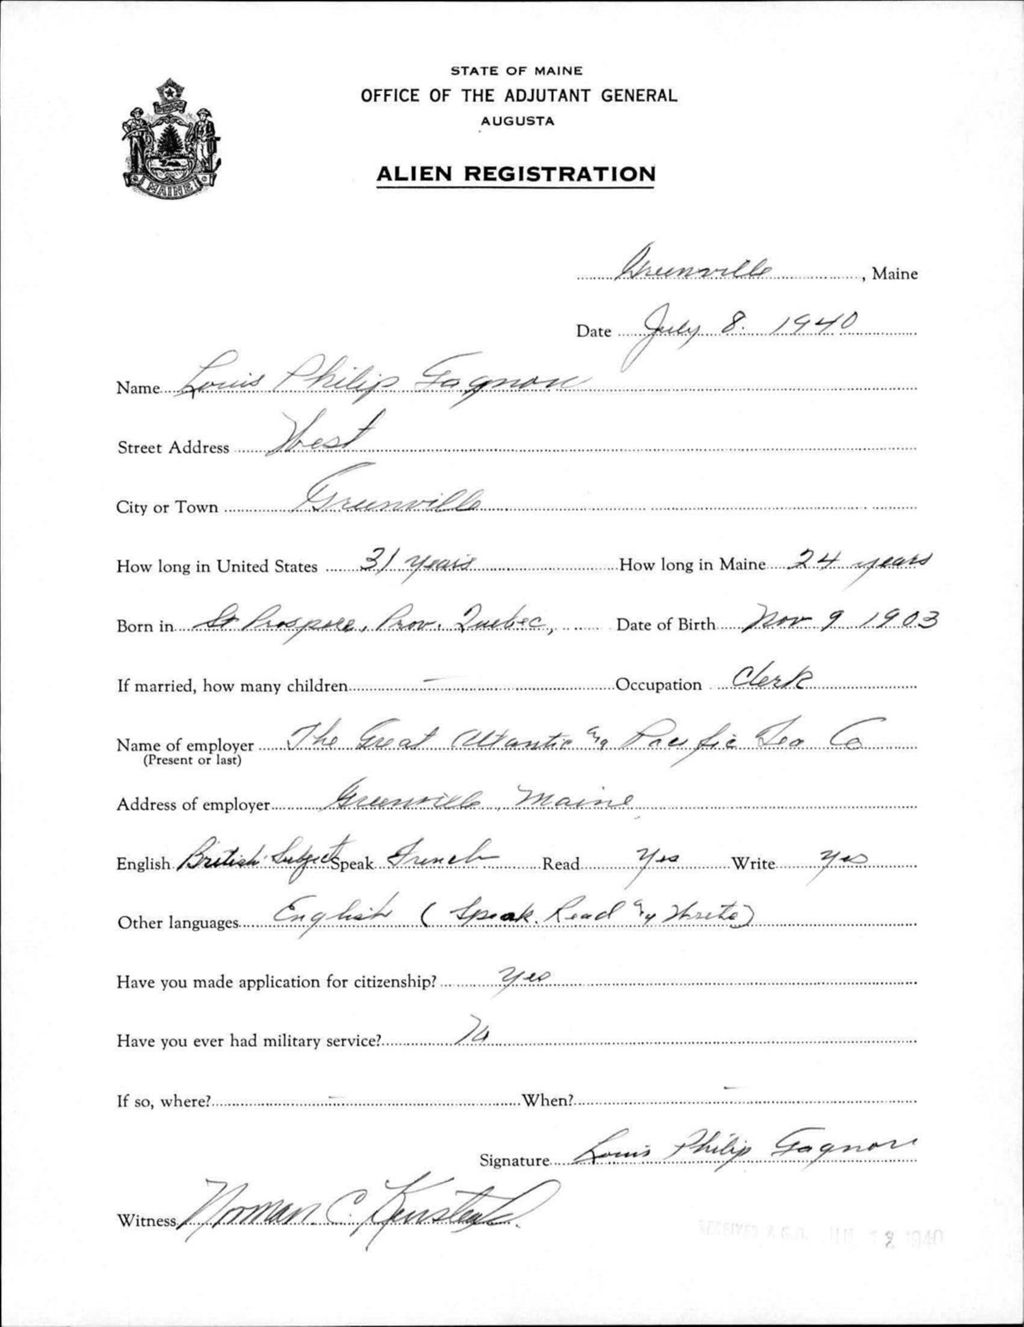 STATE OF MAINE
OFFICE OF THE ADJUTANT GENERAL
AUGUSTA
ALIEN REGISTRATION
MAINE
Greenville, Maine
Date July 8. 1940
Name Louis Philip Gagnon
Street Address West
City or Town Greenville
How long in United States 31 years How long in Maine 24 years
Born in St Prospere, Prov. Quebec, Date of Birth Nov 9 1903
If married, how many children - Occupation Clerk
Name of employer The Great Atlantic & Pacific Tea Co
(Present or last)
Address of employer Greenville, Maine
English British Subject Speak French Read Yes Write Yes
Other languages English (Speak. Read & Write)
Have you made application for citizenship? Yes
Have you ever had military service? No
If so, where? - When? -
Signature Louis Philip Gagnon
Witness Norman C.
RECEIVED A.G.O. 12 1940